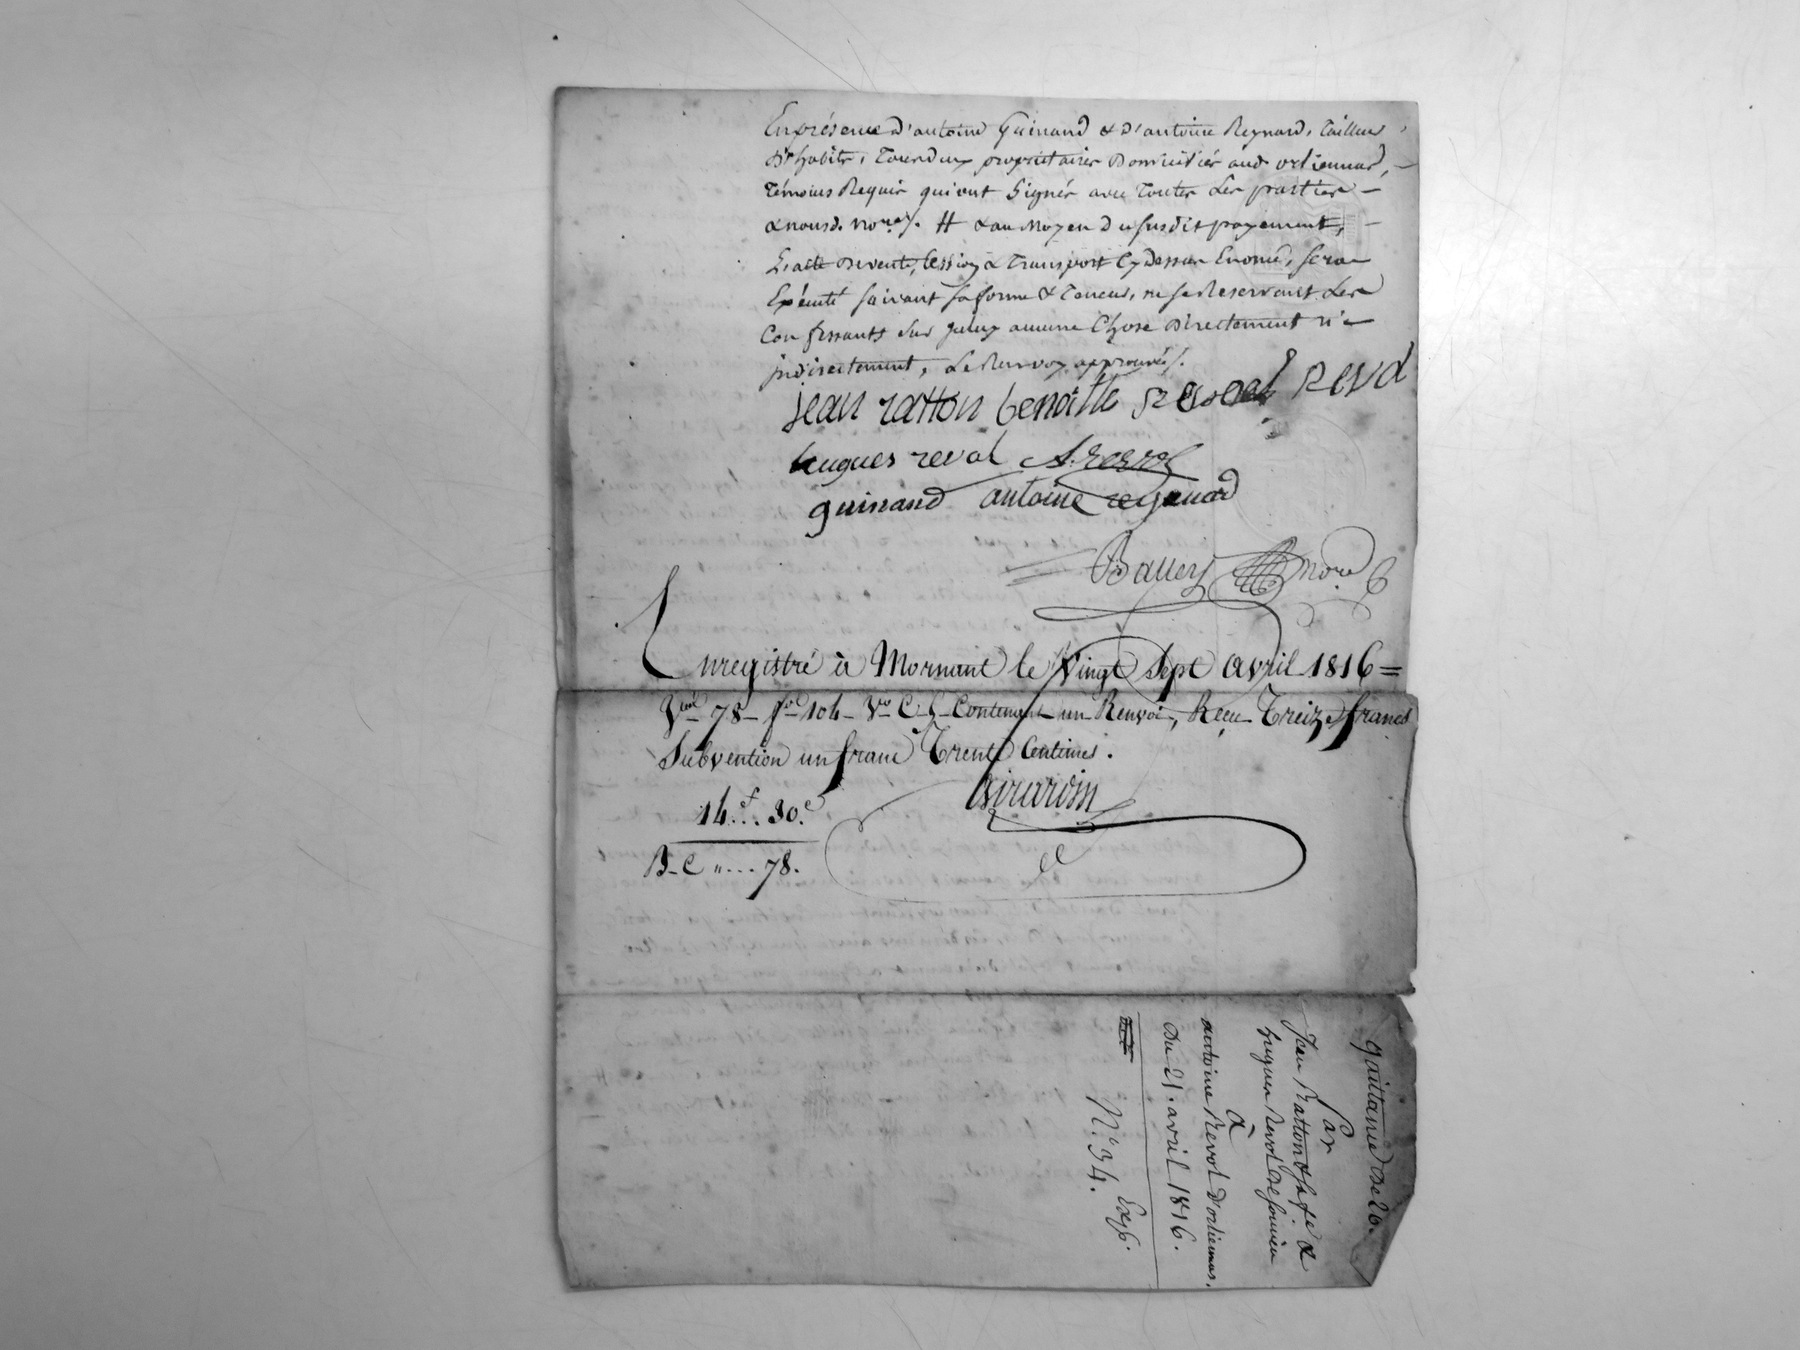 En présence d'antoine Guinand & d'antoine Reynard, tailleur
d'habits, tous deux propriétaires Domiciliés aud. orliennas,
témoins Requis qui ont Signés avec toutes Les parties
& nousd. nore /. # & au Moyen du susdit payement,
L'acte de vente, Cession & Transport Cydessus Enoncé, sera
Exécuté suivant sa forme & Teneur, ne se Reservant Les
Confessants sur iceluy aucune Chose Directement ni
indirectement, Le Renvoy approuvés /.
jean ratton benoitte revol
hugues reval A. revol
guinand antoine reynard
Bauery nore
Enregistré à Mornant le Vingt Sept avril 1816 =
Vol 78 fo 104 Vo C 5 Contenant un Renvoi, Reçu Treize francs
Subvention un franc Trente Centimes.
14f... 30c
Girardin
B-C "....78.
quittance de
Par
Jean Ratton & sa fe &
hugues Revol de
à
antoine Revol d'orlienas.
Du 21. avril 1816.
N.° 34. Exp.